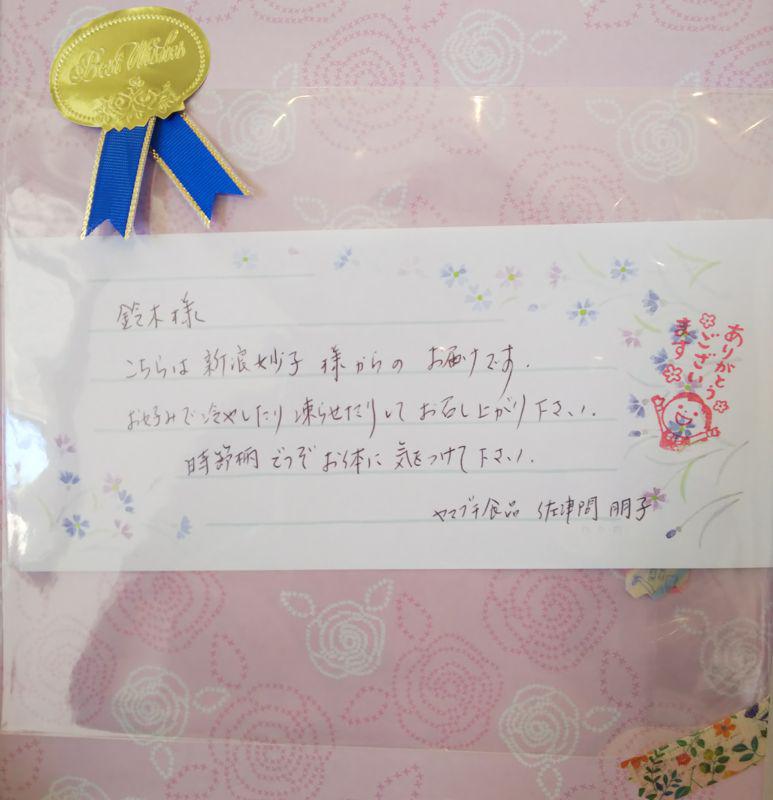 Best Wishes
鈴木様
こちらは 新浪妙子 様からの お届けです.
お好みで冷やしたり 凍らせたりして お召し上がり下さい.
時節柄 どうぞ お体に 気をつけて下さい.
ヤマブキ食品 佐津間 朋子
ありがとう
ございい
ます